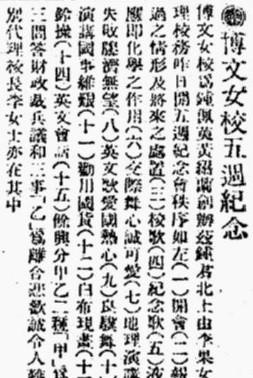 博文女校五週紀念
博文女校爲鍾佩英黃紹蘭創辦茲鍾君北上由李果女
理校務昨日開五週紀念會秩序如左(一)開會(二)報
過之情形及將來之處置(三)校歌(四)紀念歌(五)液
應卽化學之作用(六)交際舞心誠可愛(七)地理演講
失敗膠濟無望(八)英文歌愛國熱心(九)良驥舞(十
演講國事維艱(十一)勸用國貨(十二)白布現畫(十
鈴操(十四)英文會話(十五)餘興分甲乙二種「甲」爲
三問答財政裁兵議和三事「乙」爲離合悲歡誠令人難
別代理校長李女士亦在其中